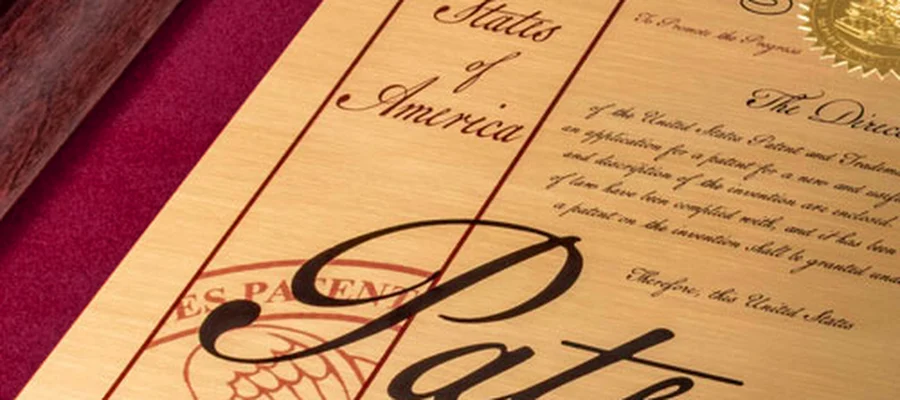 States
of
America
To Promote the Progress
The Direc
of the United States Patent and Tradem
an application for a patent for a new and usef
and description of the invention are enclosed.
of law have been complied with, and it has been
a patent on the invention shall be granted unde
Therefore, this United States
ES PATENT
Pate